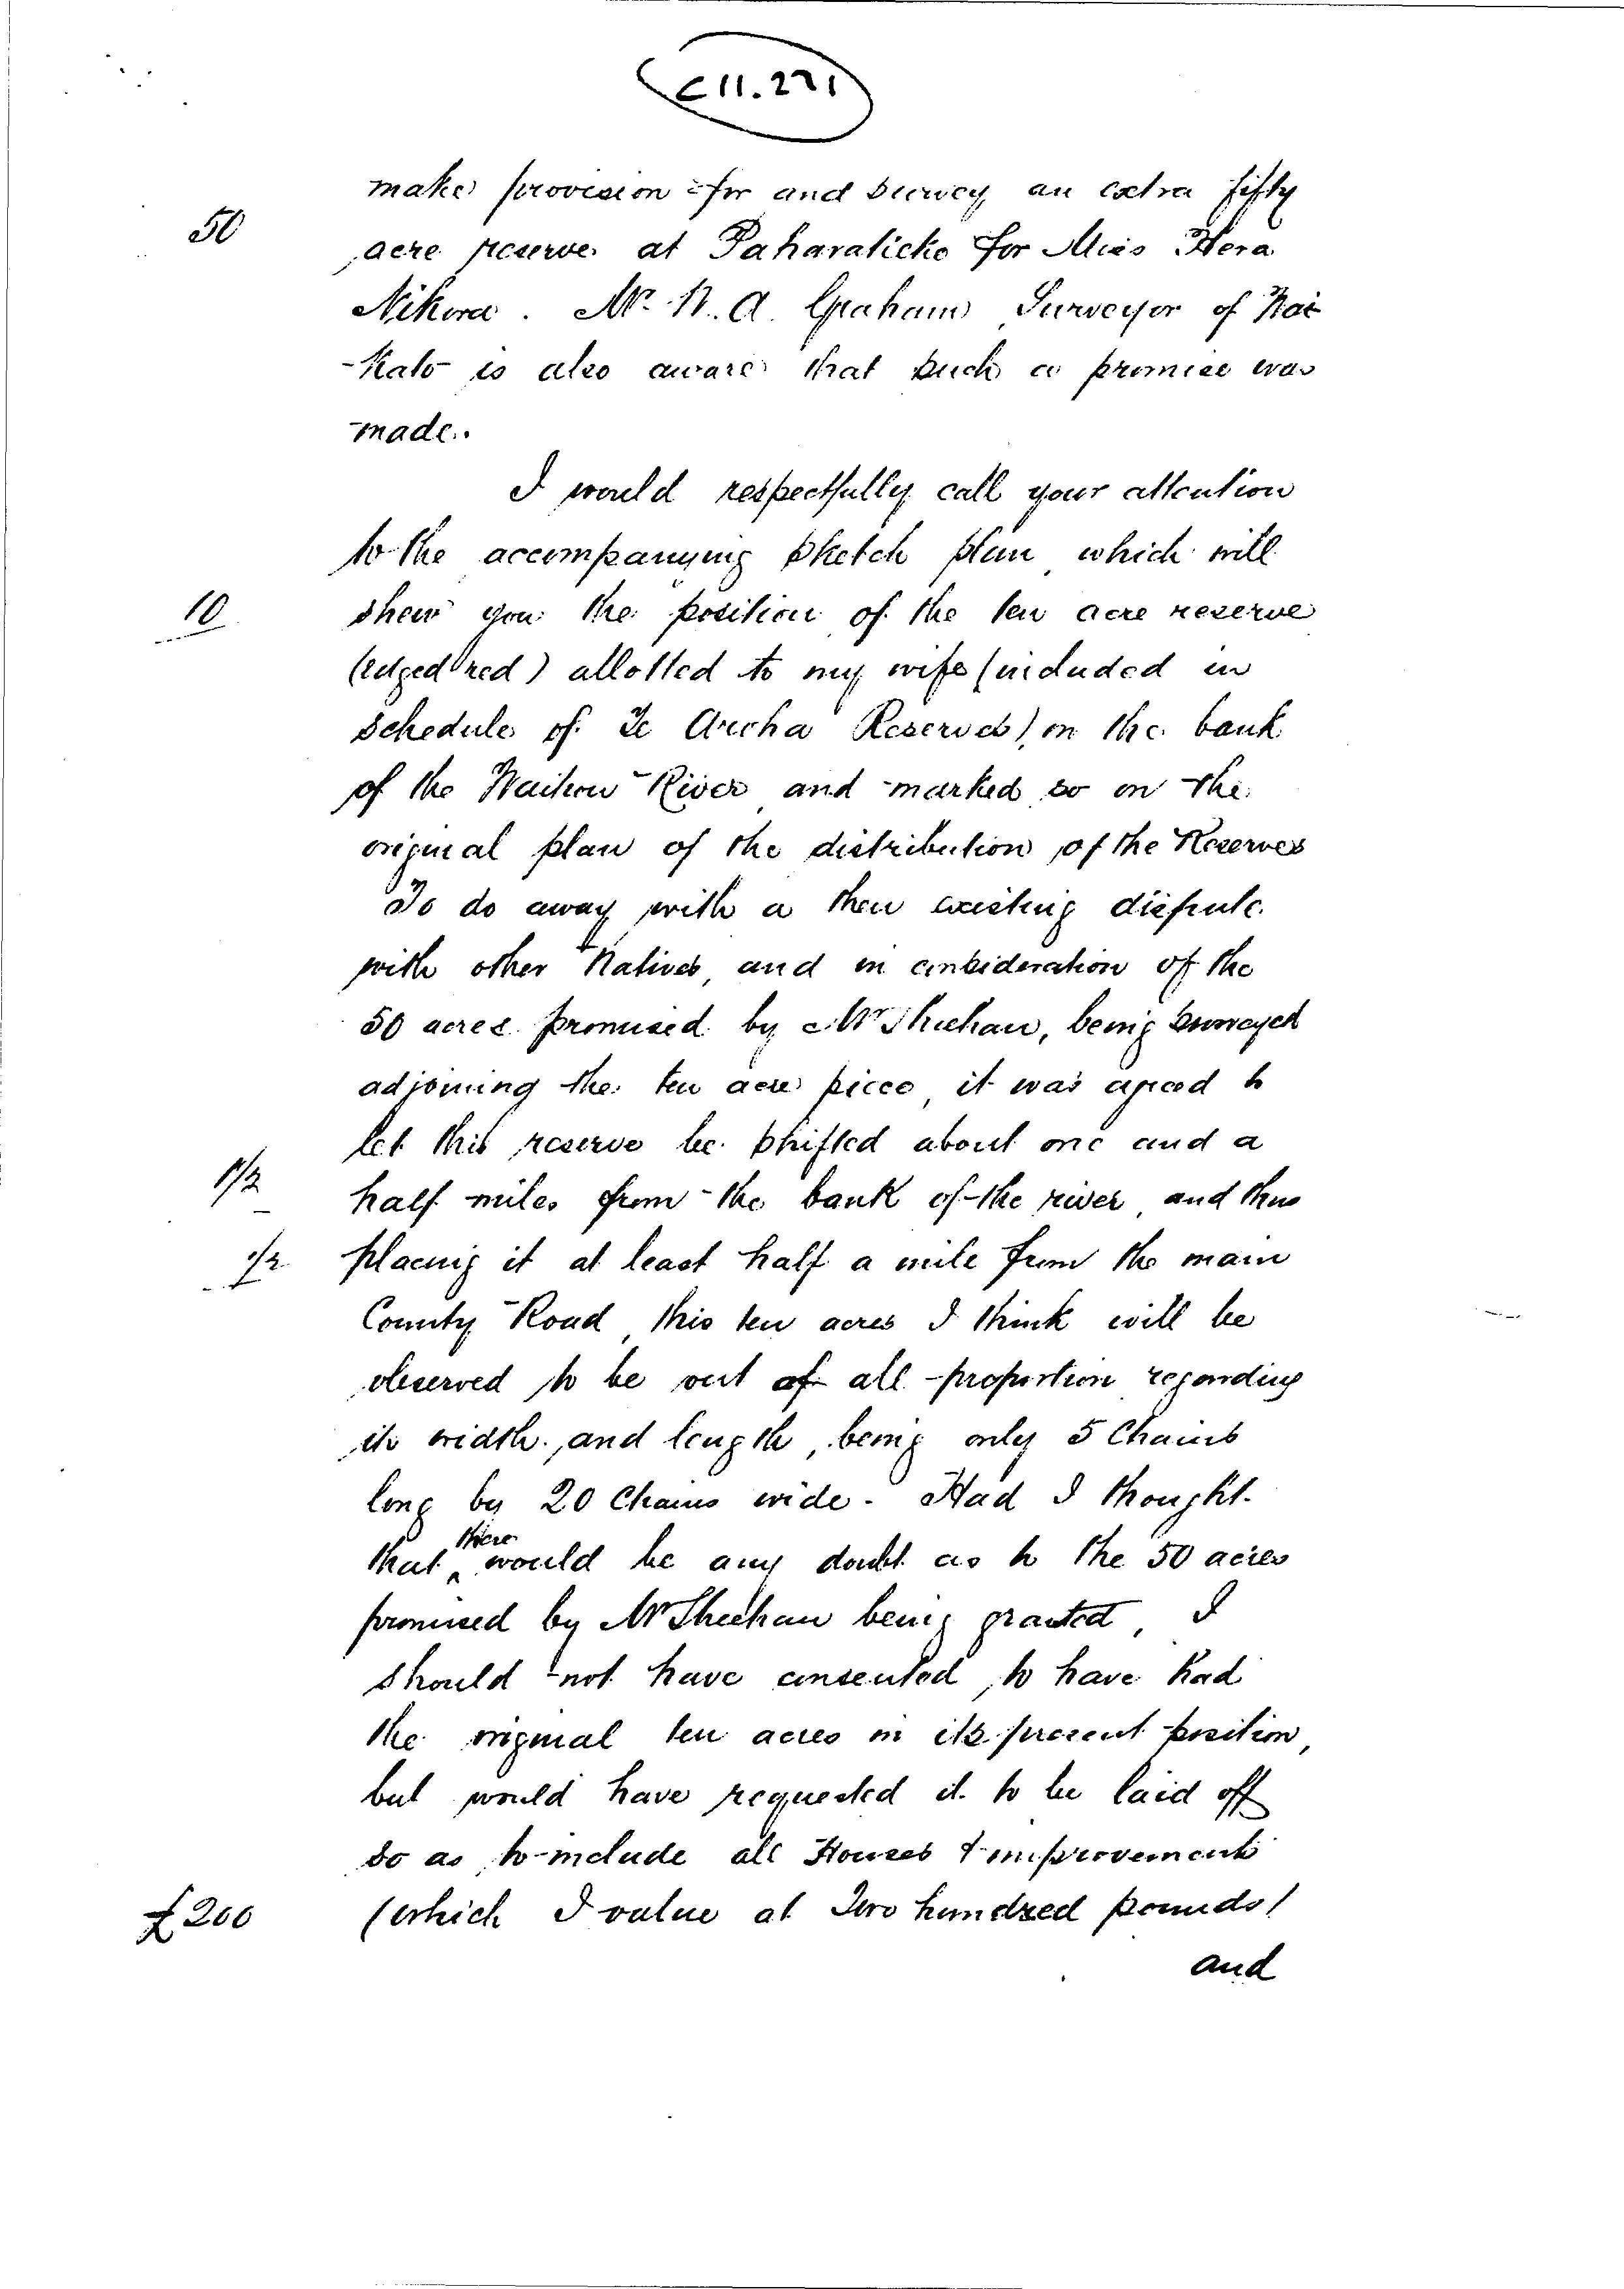 C11.221
make provision for and survey an extra fifty
50
acre reserve at Paharatieke for Miss Hera
Nikora. Mr. W. A. Graham Surveyor of Wai
-kato is also aware that such a promise was
made.
I would respectfully call your attention
to the accompanying sketch plan which will
10
shew you the position of the ten acre reserve
(edged red) allotted to my wife (included in
schedule of Te Aroha Reserves) on the bank
of the Waihou River and marked so on the
original plan of the distribution of the Reserves
To do away with a then existing dispute
with other Natives, and in consideration of the
50 acres promised by Mr Sheehan, being surveyed
adjoining the ten acre piece, it was agreed to
let this reserve be shifted about one and a
1/2
half miles from the bank of the river, and thus
1/2
placing it at least half a mile from the main
County Road, this ten acres I think will be
observed to be out of all proportion regarding
its width, and length, being only 5 Chains
long by 20 Chains wide. Had I thought
that there would be any doubt as to the 50 acres
promised by Mr Sheehan being granted, I
should not have consented to have had
the original ten acres in its present position,
but would have requested it to be laid off
so as to include all Houses & improvements
£200
(which I value at Two hundred pounds)
and